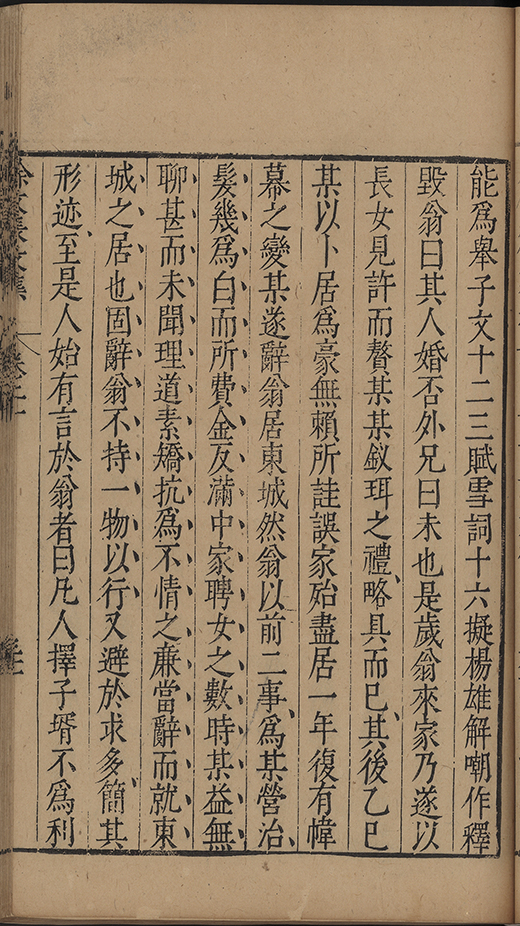 能爲舉子文十二三賦雪詞十六擬楊雄解嘲作釋
毀翁曰其人婚否外兄曰未也是歲翁來家乃遂以
長女見許而贅某某釵珥之禮略具而已其後乙巳
某以卜居爲豪無賴所詿誤家殆盡居一年復有幃
幕之變某遂辭翁居東城然翁以前二事爲某營治
髮幾爲白而所費金反滿中家聘女之數時某益無
聊甚而未聞理道素矯抗爲不情之廉當辭而就東
城之居也固辭翁不持一物以行又避於求多簡其
形迹至是人始有言於翁者曰凡人擇子壻不爲利
徐文長文集